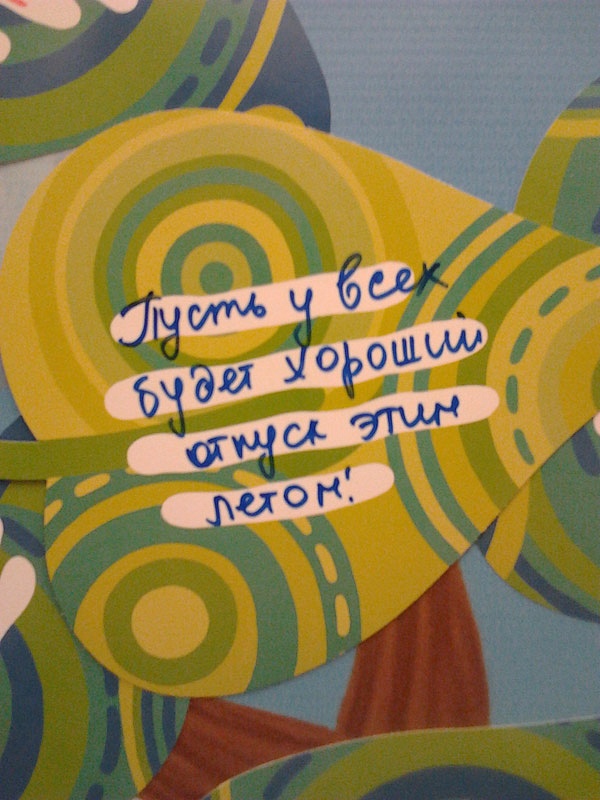 Пусть у всех
будет хороший
отпуск этим
летом!